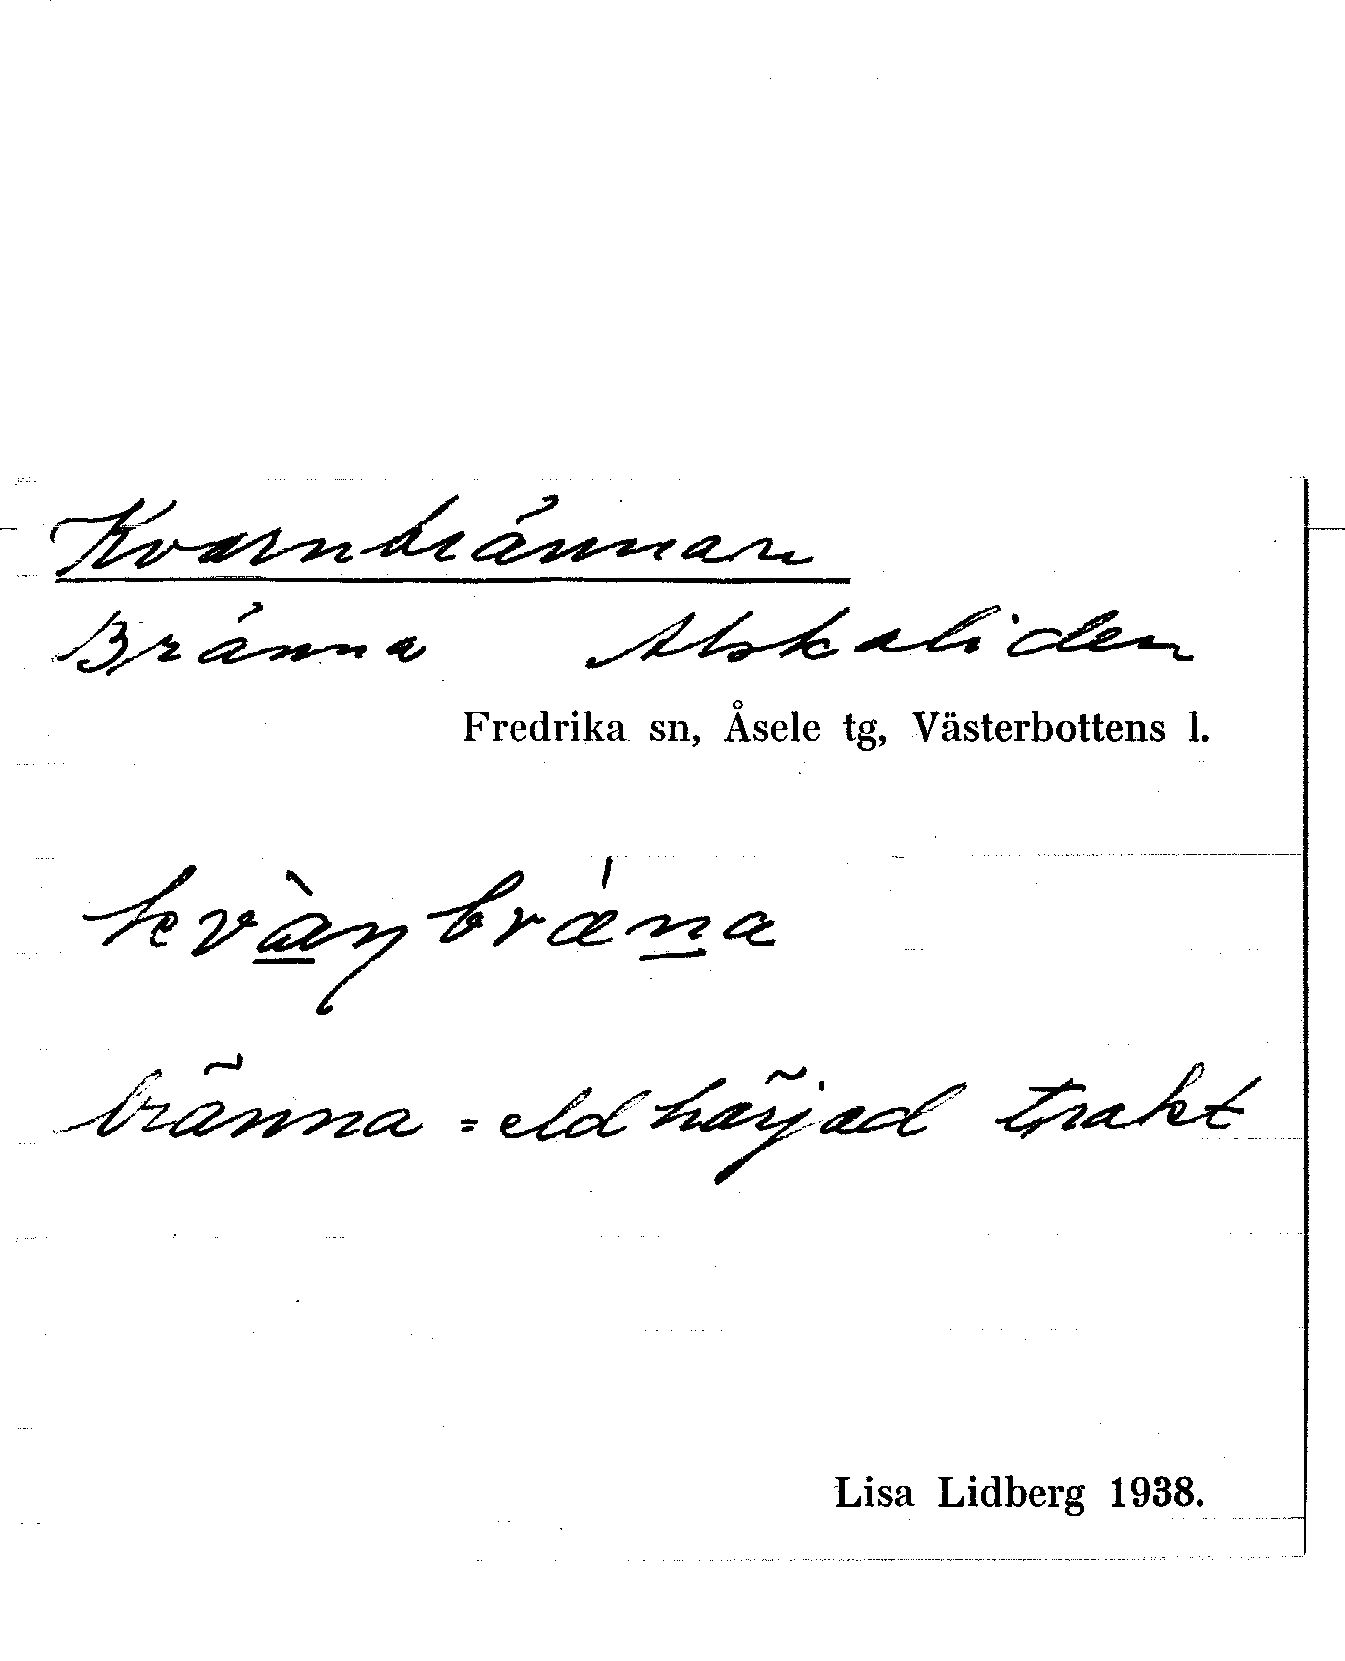 Kvarnbrännan
Bränna Alskaliden
Fredrika sn, Åsele tg, Västerbottens l.
kvàṇbrǽna
bränna = eldhärjad trakt
Lisa Lidberg 1938.